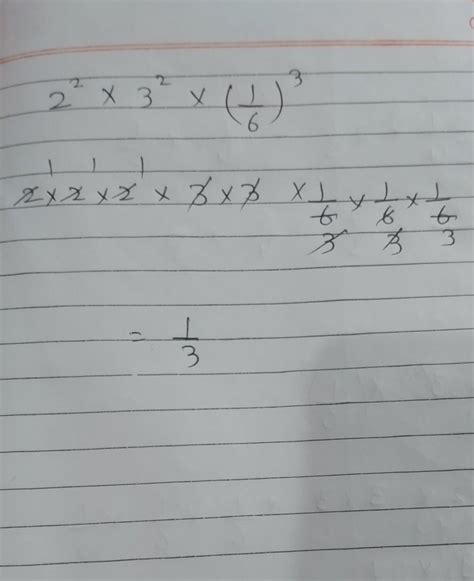 2² × 3² × (1/6)³
1 1 1
2 × 2 × 2 × 3 × 3 × 1/6 × 1/6 × 1/6
3 3 3
= 1/3